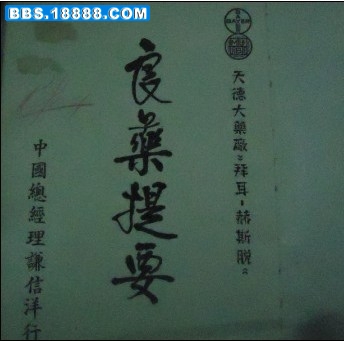 BBS.18888.COM
BAYER
天德大藥廠:拜耳-赫斯脫:
良藥提要
中國總經理謙信洋行